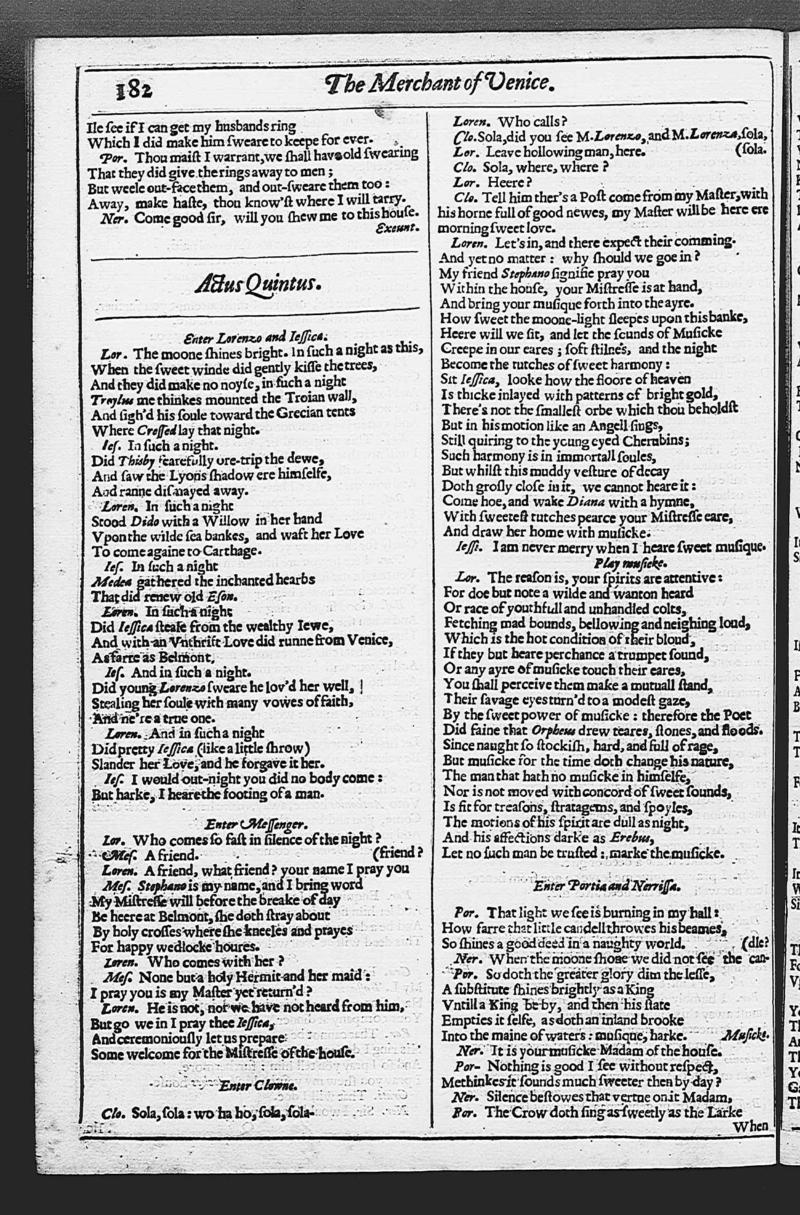 182
The Merchant of Venice.
Ile ſee if I can get my husbands ring
Which I did make him ſweare to keepe for euer.
Por. Thou maiſt I warrant, we ſhal haue old ſwearing
That they did giue the rings away to men;
But weele out-face them, and out-ſweare them too:
Away, make haſte, thou know'ſt where I will tarry.
Ner. Come good ſir, will you ſhew me to this houſe.
Exeunt.
Actus Quintus.
Enter Lorenzo and Ieſſica.
Lor. The moone ſhines bright. In ſuch a night as this,
When the ſweet winde did gently kiſſe the trees,
And they did make no noyſe, in ſuch a night
Troylus me thinkes mounted the Troian wall,
And ſigh'd his ſoule toward the Grecian tents
Where Creſſed lay that night.
Ieſ. In ſuch a night.
Did Thisby fearefully ore-trip the dewe,
And ſaw the Lyons ſhadow ere himſelfe,
And ranne diſmayed away.
Loren. In ſuch a night
Stood Dido with a Willow in her hand
Vpon the wilde ſea bankes, and waft her Loue
To come againe to Carthage.
Ieſ. In ſuch a night
Medea gathered the inchanted hearbs
That did renew old Eſon.
Loren. In ſuch a night
Did Ieſſica ſteale from the wealthy Iewe,
And with an Vnthrift Loue did runne from Venice,
As farre as Belmont.
Ieſ. And in ſuch a night.
Did young Lorenzo ſweare he lov'd her well,
Stealing her ſoule with many vowes of faith,
And ne're a true one.
Loren. And in ſuch a night
Did pretty Ieſſica (like a little ſhrow)
Slander her Loue, and he forgaue it her.
Ieſ. I would out-night you did no body come:
But harke, I heare the footing of a man.
Enter Meſſenger.
Lor. Who comes ſo faſt in ſilence of the night?
Meſ. A friend. (friend?
Loren. A friend, what friend? your name I pray you
Meſ. Stephano is my name, and I bring word
My Miſtreſſe will before the breake of day
Be heere at Belmont, ſhe doth ſtray about
By holy croſſes where ſhe kneeles and prayes
For happy wedlocke houres.
Loren. Who comes with her?
Meſ. None but a holy Hermit and her maid:
I pray you is my Maſter yet return'd?
Loren. He is not, nor we haue not heard from him,
But go we in I pray thee Ieſſica,
And ceremoniouſly let us prepare
Some welcome for the Miſtreſſe of the houſe.
Enter Clowne.
Clo. Sola, ſola: wo ha ho, ſola, ſola-
Loren. Who calls?
Clo. Sola, did you ſee M. Lorenzo, and M. Lorenza, ſola,
Lor. Leave hollowing man, here. (ſola.
Clo. Sola, where, where?
Lor. Heere?
Clo. Tell him ther's a Poſt come from my Maſter, with
his horne full of good newes, my Maſter will be here ere
morning ſweet love.
Loren. Let's in, and there expect their comming.
And yet no matter: why ſhould we goe in?
My friend Stephano ſignifie pray you
Within the houſe, your Miſtreſſe is at hand,
And bring your muſique forth into the ayre.
How ſweet the moone-light ſleepes upon this banke,
Heere will we ſit, and let the ſounds of Muſicke
Creepe in our eares; ſoft ſtilnes, and the night
Become the tutches of ſweet harmony:
Sit Ieſſica, looke how the floore of heaven
Is thicke inlayed with patterns of bright gold,
There's not the ſmalleſt orbe which thou beholdſt
But in his motion like an Angell ſings,
Still quiring to the young eyed Cherubins;
Such harmony is in immortall ſoules,
But whilſt this muddy veſture of decay
Doth groſly cloſe in it, we cannot heare it:
Come hoe, and wake Diana with a hymne,
With ſweeteſt tutches pearce your Miſtreſſe eare,
And draw her home with muſicke.
Ieſſi. I am never merry when I heare ſweet muſique.
Play muſicke.
Lor. The reaſon is, your ſpirits are attentive:
For doe but note a wilde and wanton heard
Or race of youthfull and unhandled colts,
Fetching mad bounds, bellowing and neighing loud,
Which is the hot condition of their bloud,
If they but heare perchance a trumpet ſound,
Or any ayre of muſicke touch their eares,
You ſhall perceive them make a mutuall ſtand,
Their ſavage eyes turn'd to a modeſt gaze,
By the ſweet power of muſicke: therefore the Poet
Did faine that Orpheus drew teares, ſtones, and floods.
Since naught ſo ſtockiſh, hard, and full of rage,
But muſicke for the time doth change his nature,
The man that hath no muſicke in himſelfe,
Nor is not moved with concord of ſweet ſounds,
Is fit for treaſons, ſtratagems, and ſpoyles,
The motions of his ſpirit are dull as night,
And his affections darke as Erebus,
Let no ſuch man be truſted: marke the muſicke.
Enter Portia and Nerriſſa.
Por. That light we ſee is burning in my hall:
How farre that little candell throwes his beames,
So ſhines a good deed in a naughty world. (dle?
Ner. When the moone ſhone we did not ſee the can-
Por. So doth the greater glory dim the leſſe,
A ſubſtitute ſhines brightly as a King
Vntill a King be by, and then his ſtate
Empties it ſelfe, as doth an inland brooke
Into the maine of waters: muſique, harke. Muſicke.
Ner. It is your muſicke Madam of the houſe.
Por- Nothing is good I ſee without reſpect,
Methinkes it ſounds much ſweeter then by day?
Ner. Silence beſtowes that vertue on it Madam,
Por. The Crow doth ſing as ſweetly as the Larke
When